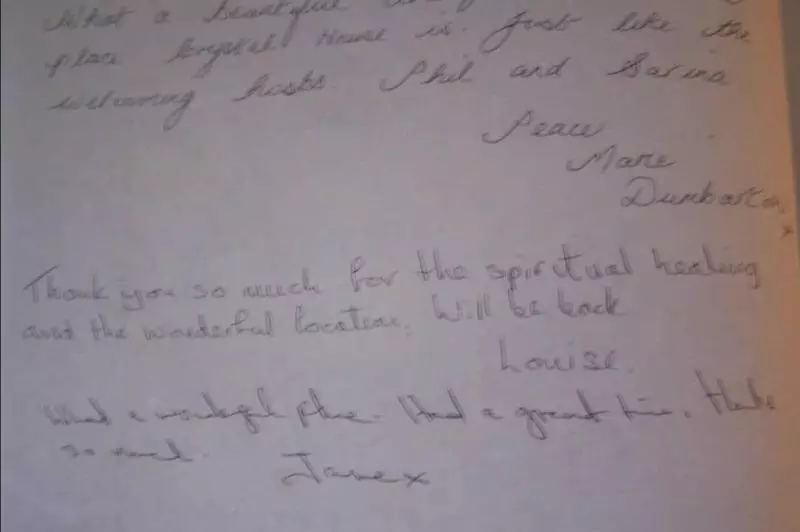 What a beautiful
place Krystal House is. Just like the
welcoming hosts Phil and Sarina
Peace
Marie
Dumbarton
x
Thank you so much for the spiritual healing
and the wonderful location. Will be back
Louise.
What a wonderful place. Had a great time, thanks
so much.
Jane x